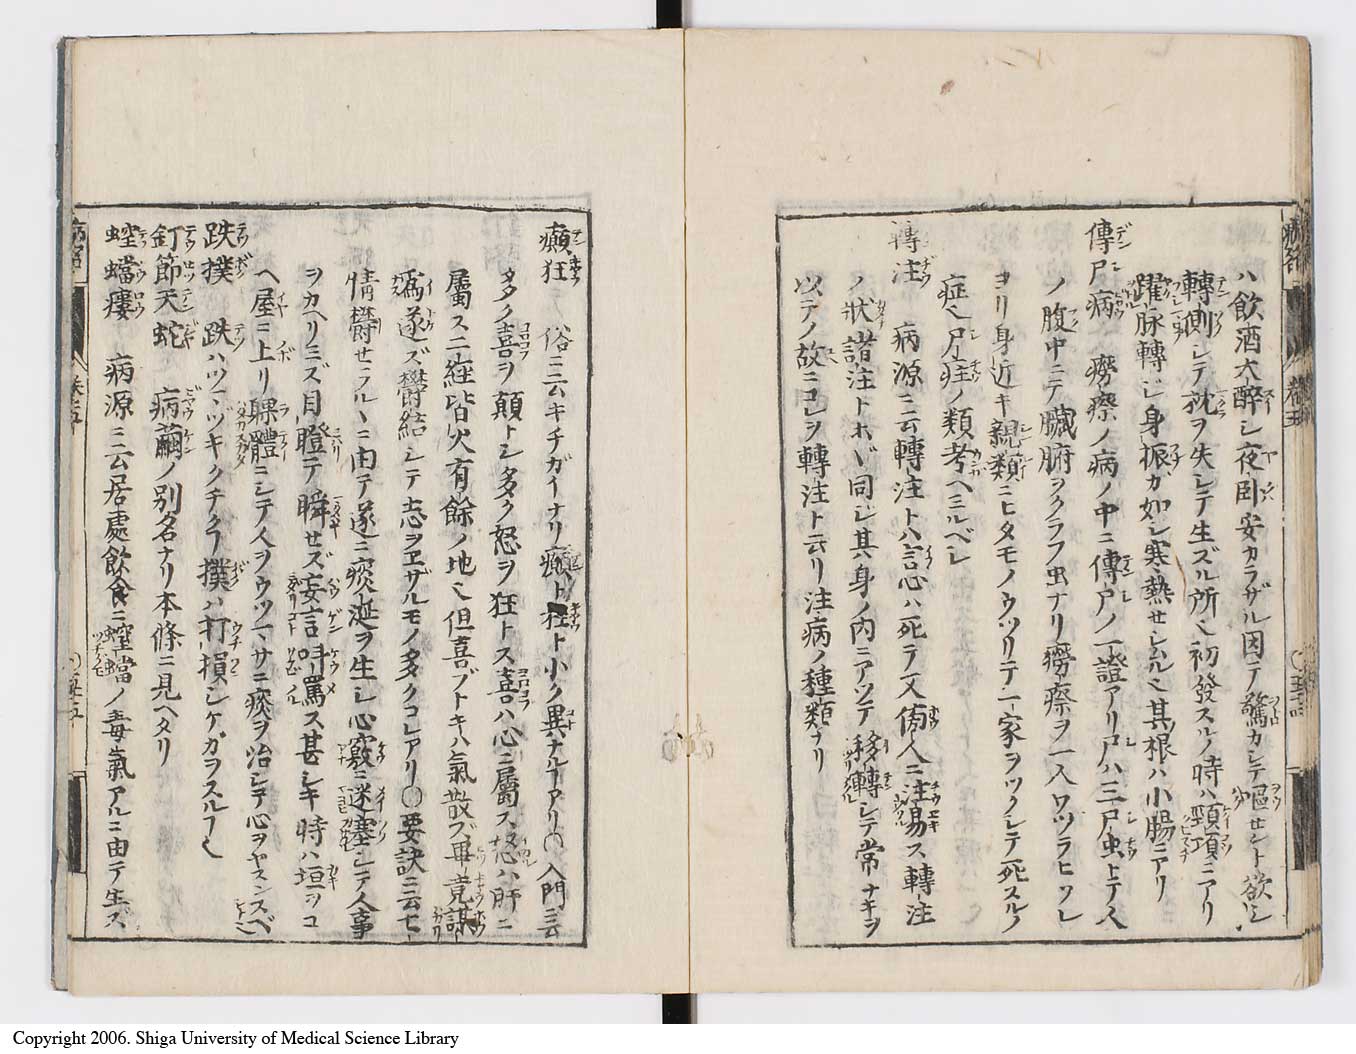 ハ飲酒大醉シ夜臥安カラザル因テ驚カシテ嘔セント欲シ
轉側シテ枕ヲ失シテ生ズル所也初發スルノ時ハ頸項ニアリ
躍脉轉ジ身振ガ如シ寒熱セシムル也其根ハ小腸ニアリ
傳尸病 癆瘵ノ病ノ中ニ傳尸ノ一證アリ尸ハ三尸虫トテ人
ノ腹中ニテ臓腑ヲクラフ虫ナリ癆瘵ヲ一人ワツラヒソレ
ヨリ身近キ親類ニヒタモノウツリテ一家ヲツクシテ死スルノ
症也尸疰ノ類考ヘミルベシ
轉注 病源ニ云轉注ト八言心ハ死テ又傍人ニ注易ス轉注
ノ狀諸注トホヾ同シ其身ノ内ニアツテ移轉シテ常ナキヲ
以テノ故ニコレヲ轉注ト云リ注病ノ種類ナリ
癲狂 俗ニ云キチガイナリ癲ト狂ト小ク異ナルヿアリ〇入門ニ云
多ク喜ヲ顛トシ多ク怒ヲ狂トス喜ハ心ニ屬ス怒ハ肝ニ
屬ス二經皆火有餘ノ地也但喜ブトキハ氣散ズ畢竟謀
爲遂ズ欝結シテ志ヲヱザルモノ多クコレアリ〇要訣ニ云七
情欝セラルヽニ由テ遂ニ痰涎ヲ生シ心竅ニ迷塞シテ人事
ヲカヘリミズ目瞪テ瞬セズ妄言叫罵ス甚シキ時ハ垣ヲコ
ヘ屋ニ上リ躶體ニシテ人ヲウツマサニ痰ヲ治シテ心ヲヤスンスベシ
跌撲 跌ハツマヅキクチクフ撲ハ打損シケガヲスルヿ也
釘節天蛇 病繭ノ別名ナリ本條ニ見ヘタリ
螳蟷瘻 病源ニ云居處飲食ニ螳蟷ノ毒氣アルニ由テ生ズ
Copyright 2006. Shiga University of Medical Science Library